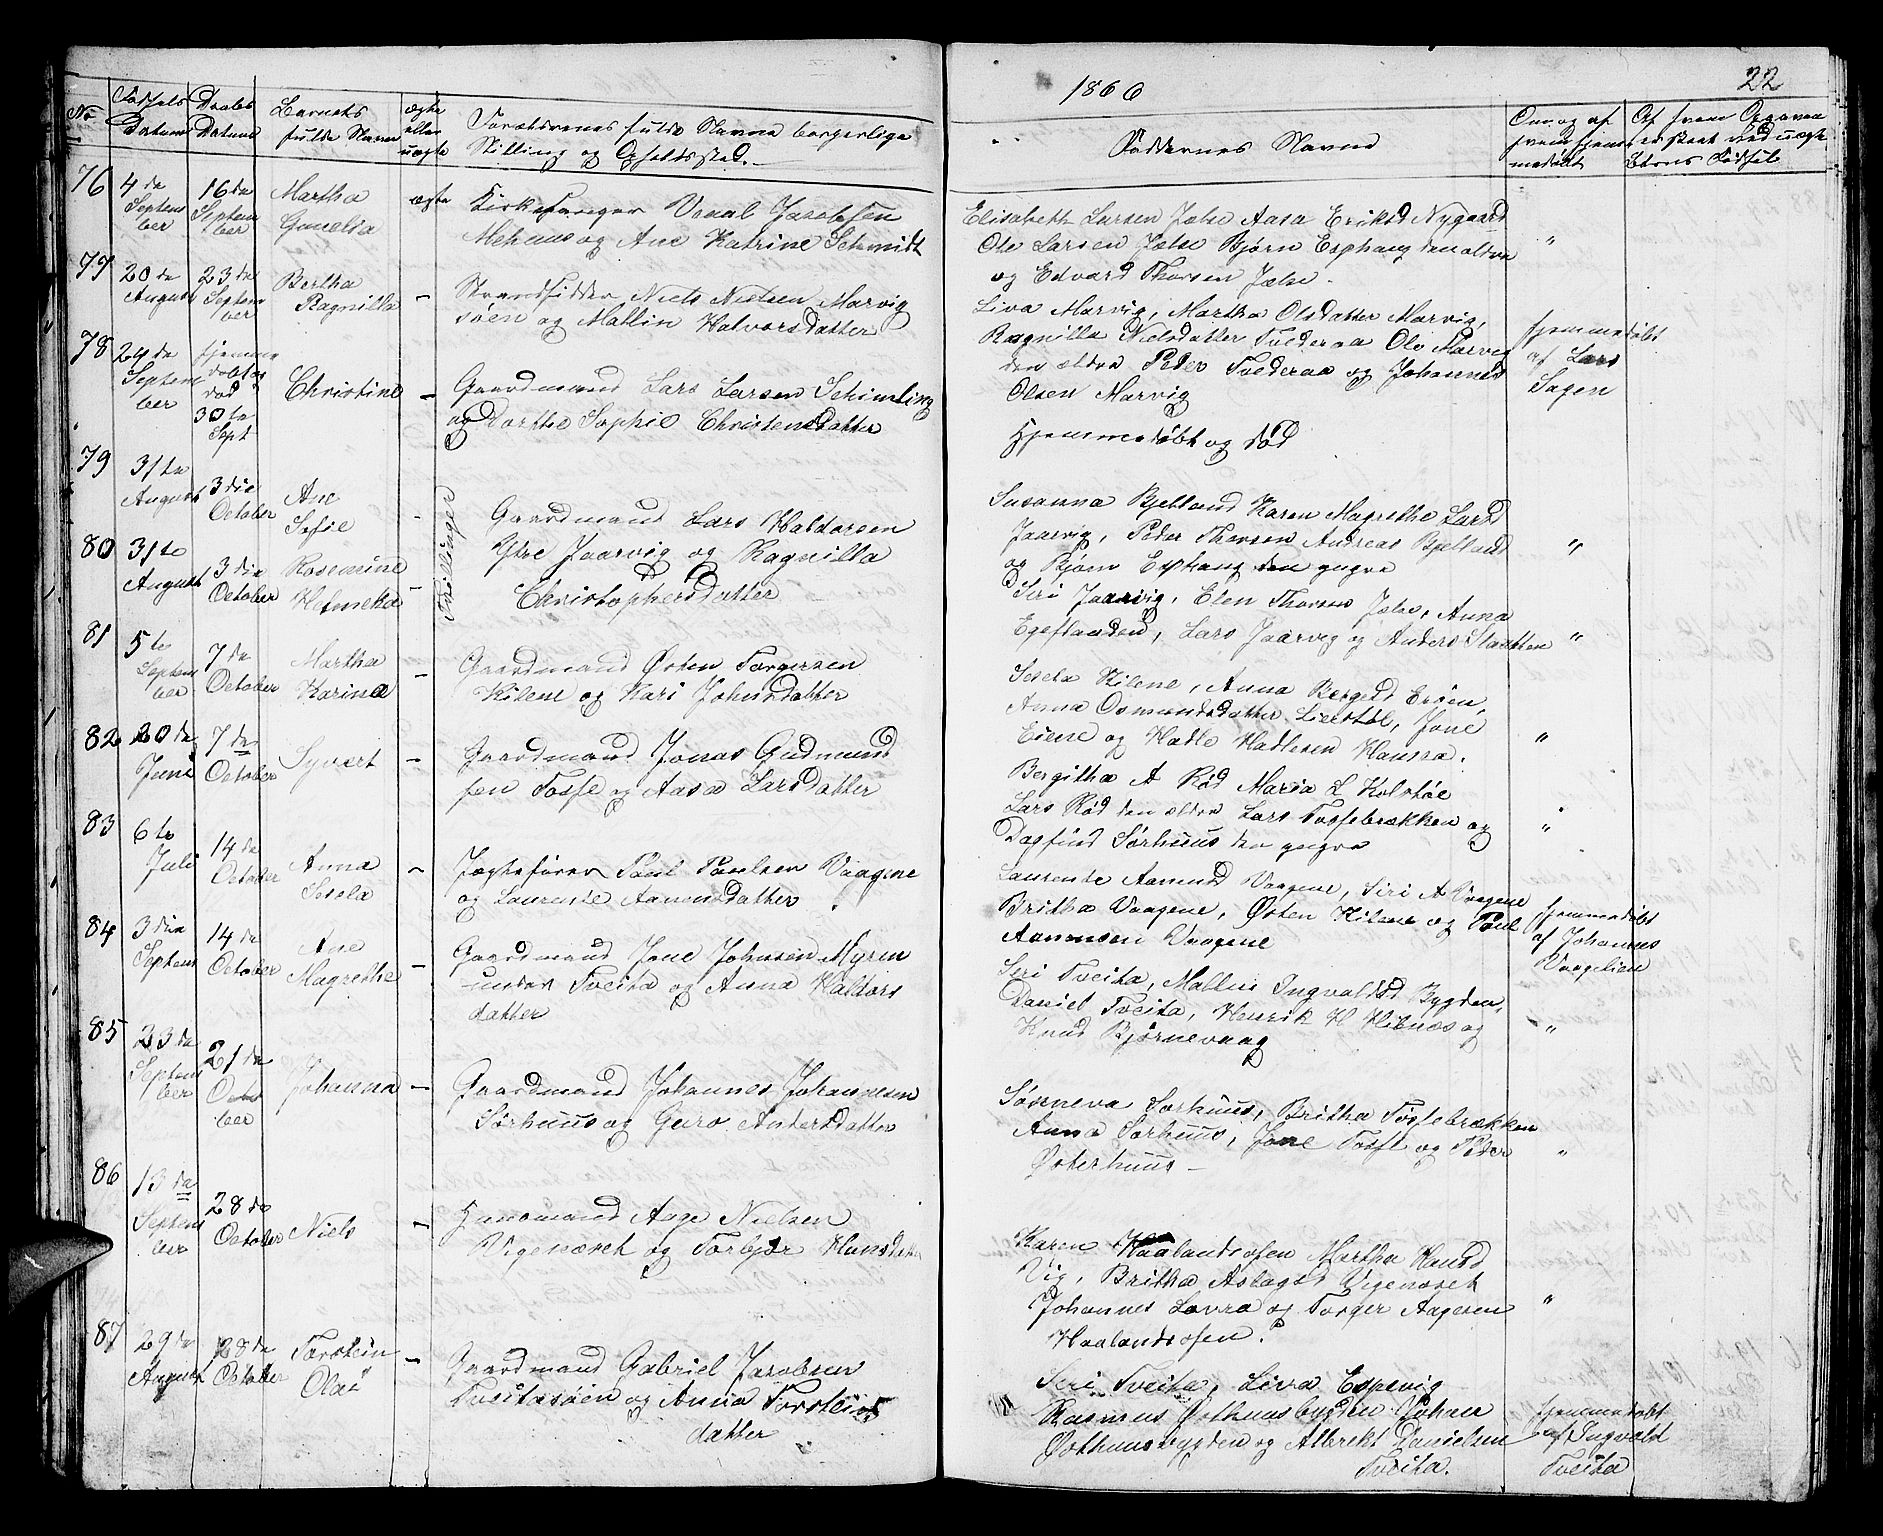 1866
22
No
Fødsels Datum
Daabs Datum
Barnets fulde Navn
ægte eller uægte
Forældrenes fulde Navne borgerlige
Stilling og Opholdssted.
Faddernes Navne
Om og af hvem hjemmedøbt
76 4de September 16de September Martha Gunelia ægte
Kirkesanger Vaaal Jacobsen
Mehuus og Ane Katrine Schmidt
Elisabeth Larsen Jelse Aasa Eriksd Nygaard
Ole Larsen Jelse Bjørn Esphaug den ældre
og Edvard Thorsen Jelse.
77 20de August 23de September Bertha Ragnilla -
Strandsidder Niels Nielsen Marvig
søen og Mallin Halvorsdatter
Liva Marvig, Martha Olsdatter Marvig,
Ragnilla Nielsdatter Tvederaa Ole Marvig
den ældre Peder Tvederaa og Johannes
Olsen Marvig
hjemmedøbt af Lars Sagen
78 24de September hjemmedøbt og død 30te Sept Christine -
Gaardmand Lars Larsen Schimling
og Dorthe Sophie Christensdatter
Hjemmedøbt og død
79 31te August 3die October Ane Sofie -
Trillinger
Gaardmand Lars Haldorsen
Ytre Jaarvig og Ragnilla
Christophersdatter
Susanna Bjelland Karen Magrethe Larsd
Jaarvig, Peder Thorsen Andreas Bjelland
og Bjørn Esphaug den yngre
80 31te August 3die October Rosemine Helmeka -
Siri Jaarvig, Elen Thorsen Jelse, Anna
Egeflanden, Lars Jaarvig og Anders Slaatten
81 5te September 7de October Martha Karina -
Gaardmand Østen Torgersen
Kilene og Kari Johnsdatter
Sesela Kilene, Anna Bergesd Eröen,
Anna Osmundsdatter Lierstøl, Jone
Eiene og Hadle Hadlesen Haussa.
82 20de Juni 7de October Syvert -
Gaardmand Jonas Gudmundsen
Fosse og Aasa Larsdatter
Bergitha A Rød Maria L Kolstøe
Lars Rød den ældre Lars Fossebrækken og
Dagfind Sørhuus den yngre
83 6te Juli 14de October Anna Sesela -
Jægtefører Paul Paulsen Vaagene
og Laurentse Aamundsdatter
Laurentse Aamund Vaagene, Siri A Vaagene
Britha Vaagene, Østen Kilene og Paul
Aamunsen Vaagene
hjemmedøbt af Johannes Vaagelien
84 3die Septemb 14de October Ane Magrethe -
Gaardmand Jone Johnsen Myren
under Tveita og Anna Haldorsdatter
Siri Tveita, Mallin Ingvaldsd Bygden,
Daniel Tveita, Henrik H Hebnes og
Knud Bjørnevaag
85 23de September 21de October Johanna -
Gaardmand Johannes Johannesen
Sørhuus og Guro Andersdatter
Sønneva Sørhuus, Britha Fossebrækken
Anna Sørhuus, Jone Fosse og Peder
Østerhuus -
86 13de September 28de October Niels -
Huusmand Aage Nielsen
Vigenæset og Torbjør Hansdatter
Karen Haalandsosen Martha Hansd
Vig, Britha Aslagsd Vigenæset
Johannes Lovra og Torger Aagesen
Haalandsosen.
87 29de August 28de October Torstein Olai -
Gaardmand Gabriel Jacobsen
Tveitasøen og Anna Torsteinsdatter
Siri Tveita, Liva Espevig
Rasmus Østhuusbygden Johan
Østhuusbygden og Albrekt Danielsen
Tveita.
hjemmedøbt af Ingvald Tveita